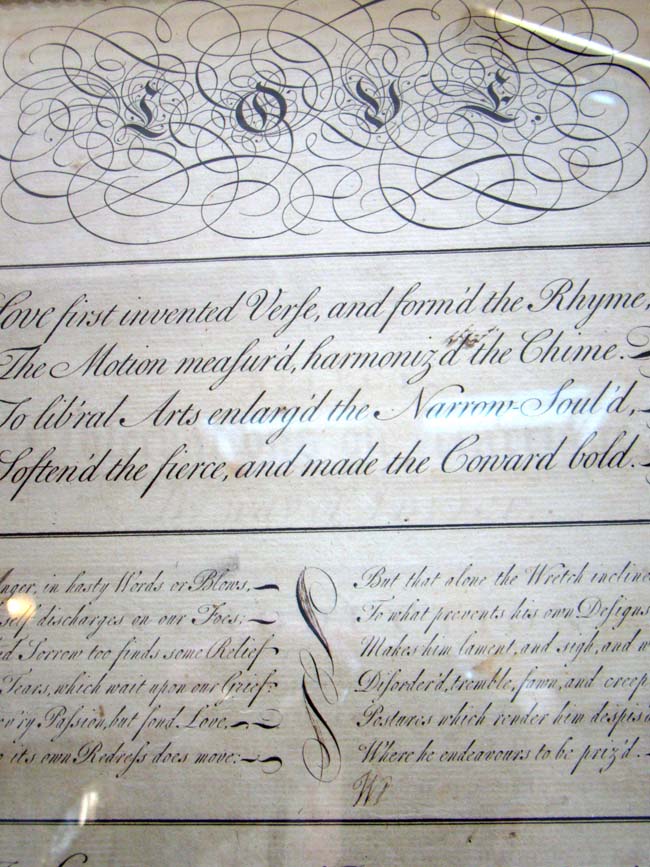 LOVE.
Love first invented Verſe, and form'd the Rhyme,
The Motion meaſur'd, harmoniz'd the Chime.
To lib'ral Arts enlarg'd the Narrow-Soul'd,
Soften'd the fierce, and made the Coward bold.
Anger, in hasty Words or Blows,
itself diſcharges on our Foes;
and Sorrow too finds some Relief
Tears, which wait upon our Grief:
ev'ry Paſsion, but fond Love,
its own Redreſs does move;
But that alone the Wretch incline
To what prevents his own Deſigns
Makes him lament, and sigh, and w
Diſorder'd, tremble, fawn, and creep
Postures which render him despis'd
Where he endeavours to be priz'd.